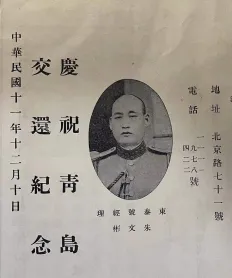 地址 北京路七十一號
電話
號
東泰號經理
朱文彬
慶祝青島
交還紀念
中華民國十一年十二月十日